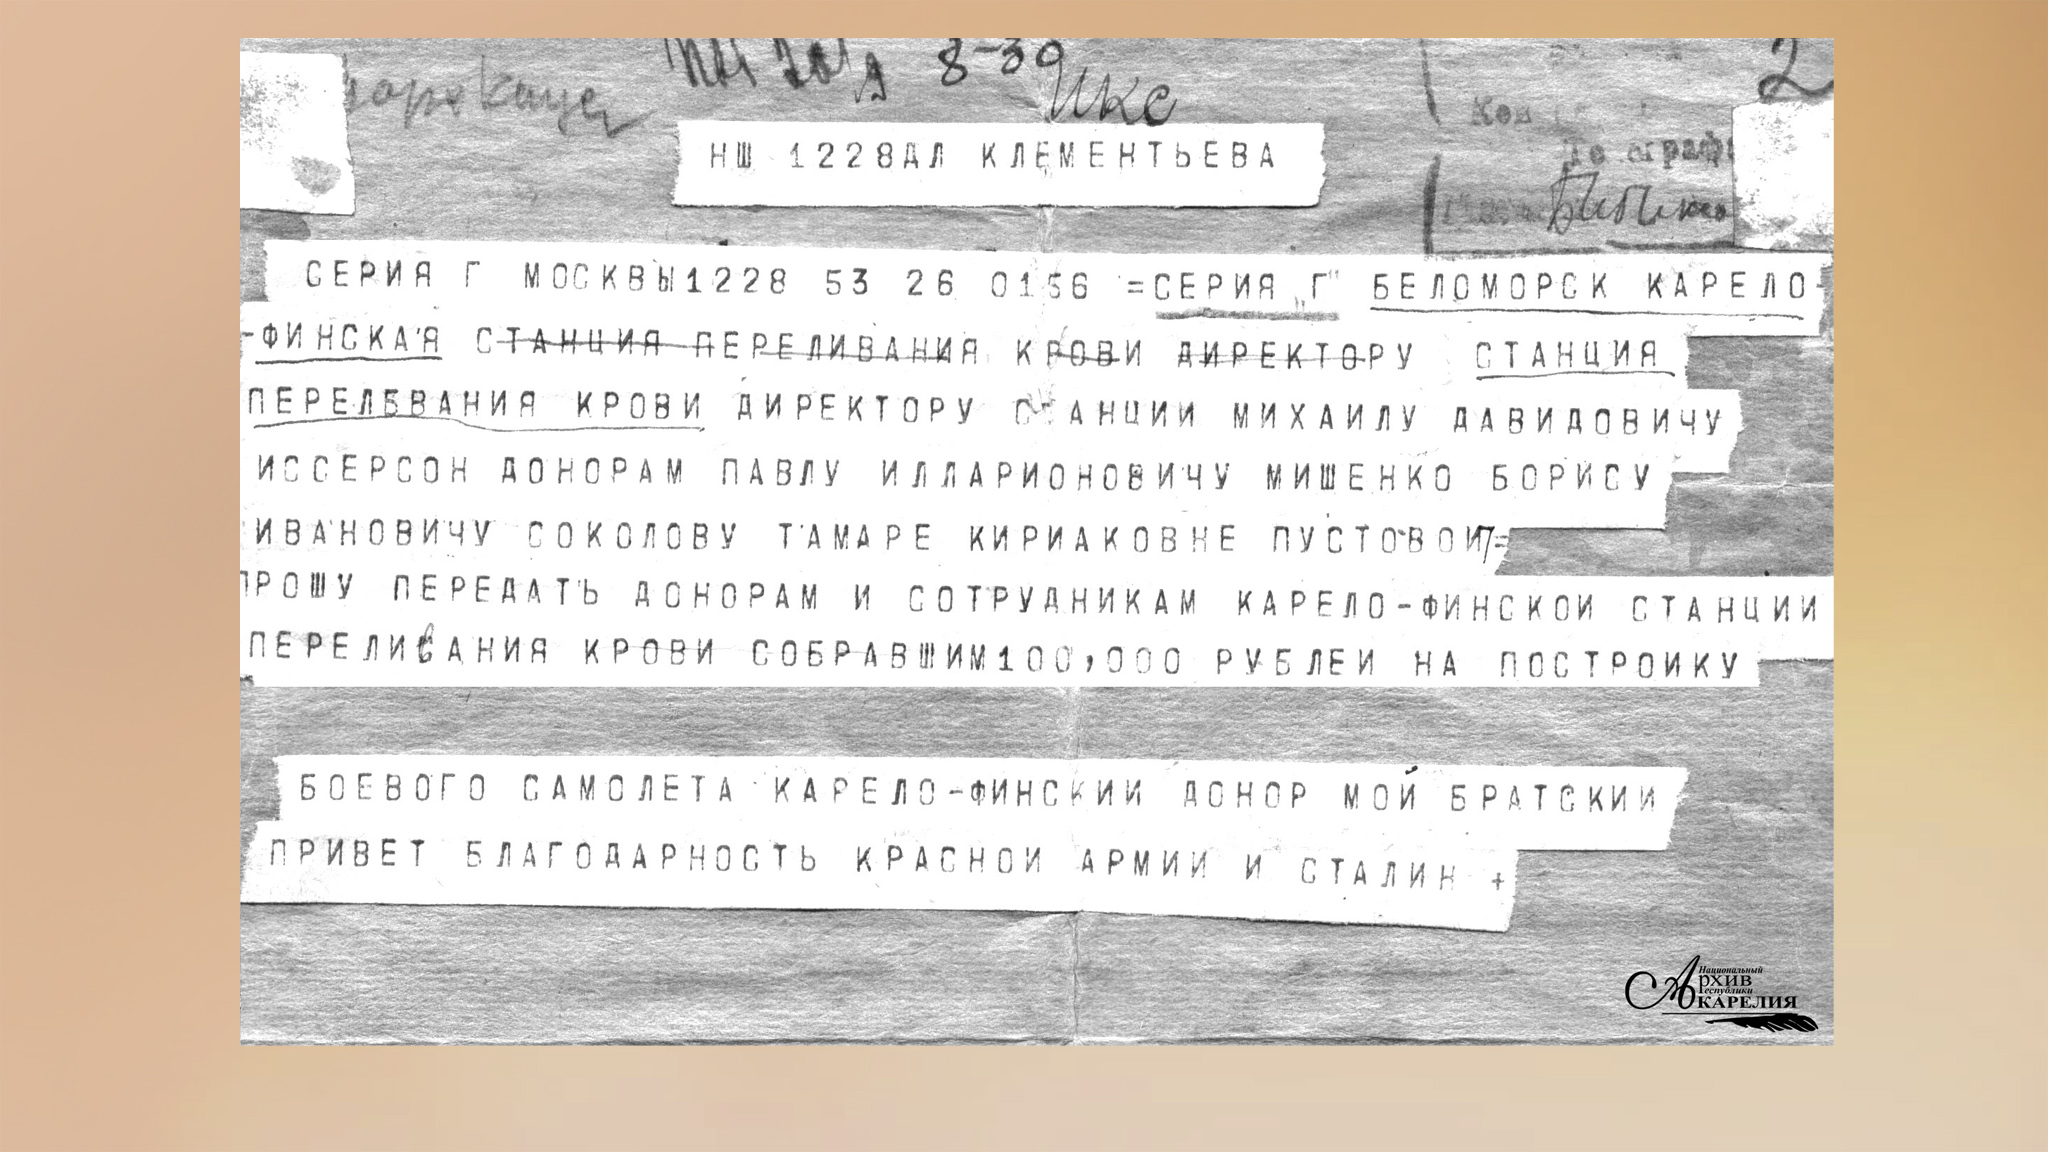 8-30
2
НШ 1228ДЛ КЛЕМЕНТЬЕВА
СЕРИЯ Г МОСКВЫ1228 53 26 0156 =СЕРИЯ „Г" БЕЛОМОРСК КАРЕЛО-
-ФИНСКАЯ СТАНЦИЯ ПЕРЕЛИВАНИЯ КРОВИ ДИРЕКТОРУ СТАНЦИЯ
ПЕРЕЛЕВАНИЯ КРОВИ ДИРЕКТОРУ СТАНЦИИ МИХАИЛУ ДАВИДОВИЧУ
ИССЕРСОН ДОНОРАМ ПАВЛУ ИЛЛАРИОНОВИЧУ МИШЕНКО БОРИСУ
ИВАНОВИЧУ СОКОЛОВУ ТАМАРЕ КИРИАКОВНЕ ПУСТОВОИ=
ПРОШУ ПЕРЕДАТЬ ДОНОРАМ И СОТРУДНИКАМ КАРЕЛО-ФИНСКОИ СТАНЦИИ
ПЕРЕЛИВАНИЯ КРОВИ СОБРАВШИМ100,000 РУБЛЕИ НА ПОСТРОИКУ
БОЕВОГО САМОЛЕТА КАРЕЛО-ФИНСКИИ ДОНОР МОЙ БРАТСКИИ
ПРИВЕТ БЛАГОДАРНОСТЬ КРАСНОИ АРМИИ И СТАЛИН +
Национальный
АРХИВ
Республики
КАРЕЛИЯ